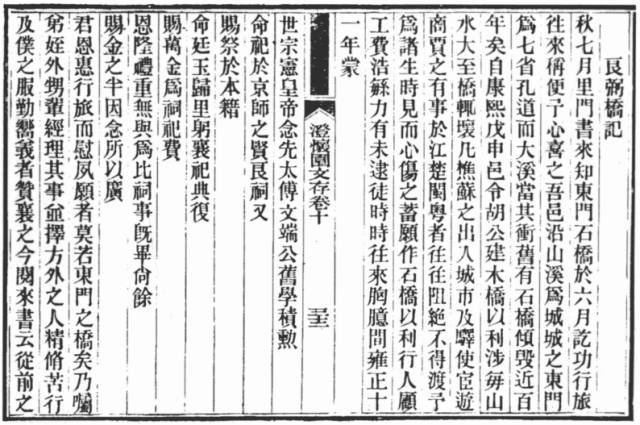 良弼橋記
秋七月里門書來知東門石橋於六月訖功行旅
往來稱便予心喜之吾邑沿山溪爲城城之東門
爲七省孔道而大溪當其衝舊有石橋傾毀近百
年矣自康熙戊申邑令胡公建木橋以利涉每山
水大至橋輒壞凡樵蘇之出入城市及驛使宦遊
商賈之有事於江楚閩粵者往往阻絕不得渡予
爲諸生時見而心傷之蓄願作石橋以利行人顧
工費浩繇力有未逮徒時時往來胸臆間雍正十
一年蒙
澄懷園文存卷十
三三
世宗憲皇帝念先太傅文端公舊學積勲
命祀於京師之賢良祠又
賜祭於本籍
命廷玉歸里躬襄祀典復
賜萬金爲祠祀費
恩隆禮重無與爲比祠事旣畢尙餘
賜金之半因念所以廣
君恩惠行旅而慰夙願者莫若東門之橋矣乃囑
弟姪外甥輩經理其事並擇方外之人精脩苦行
及僕之服勤嚮義者贊襄之今閱來書云從前之